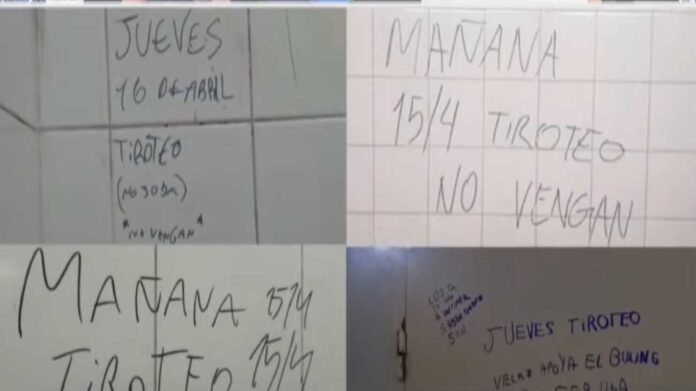 JUEVES
16 DE ABRIL
TIROTEO
*NO VENGAN*
MAÑANA
15/4 TIROTEO
NO VENGAN
MAÑANA 15/4
TIROTEO 15/4
JUEVES TIROTEO
APOYA EL BULING